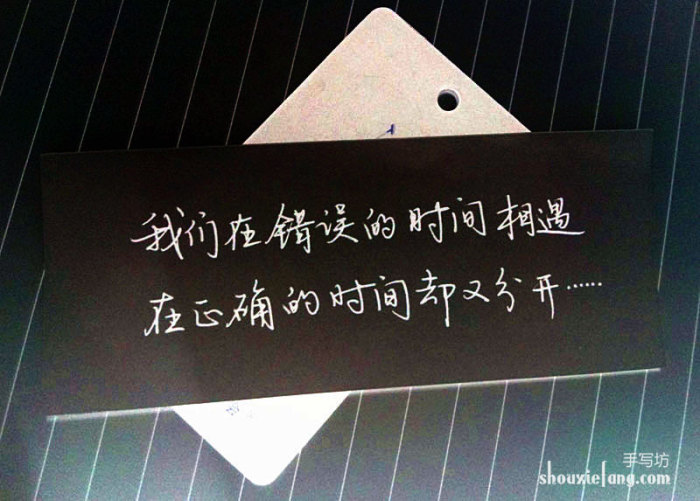 我们在错误的时间相遇
在正确的时间却又分开……
手写坊
shouxiefang.com